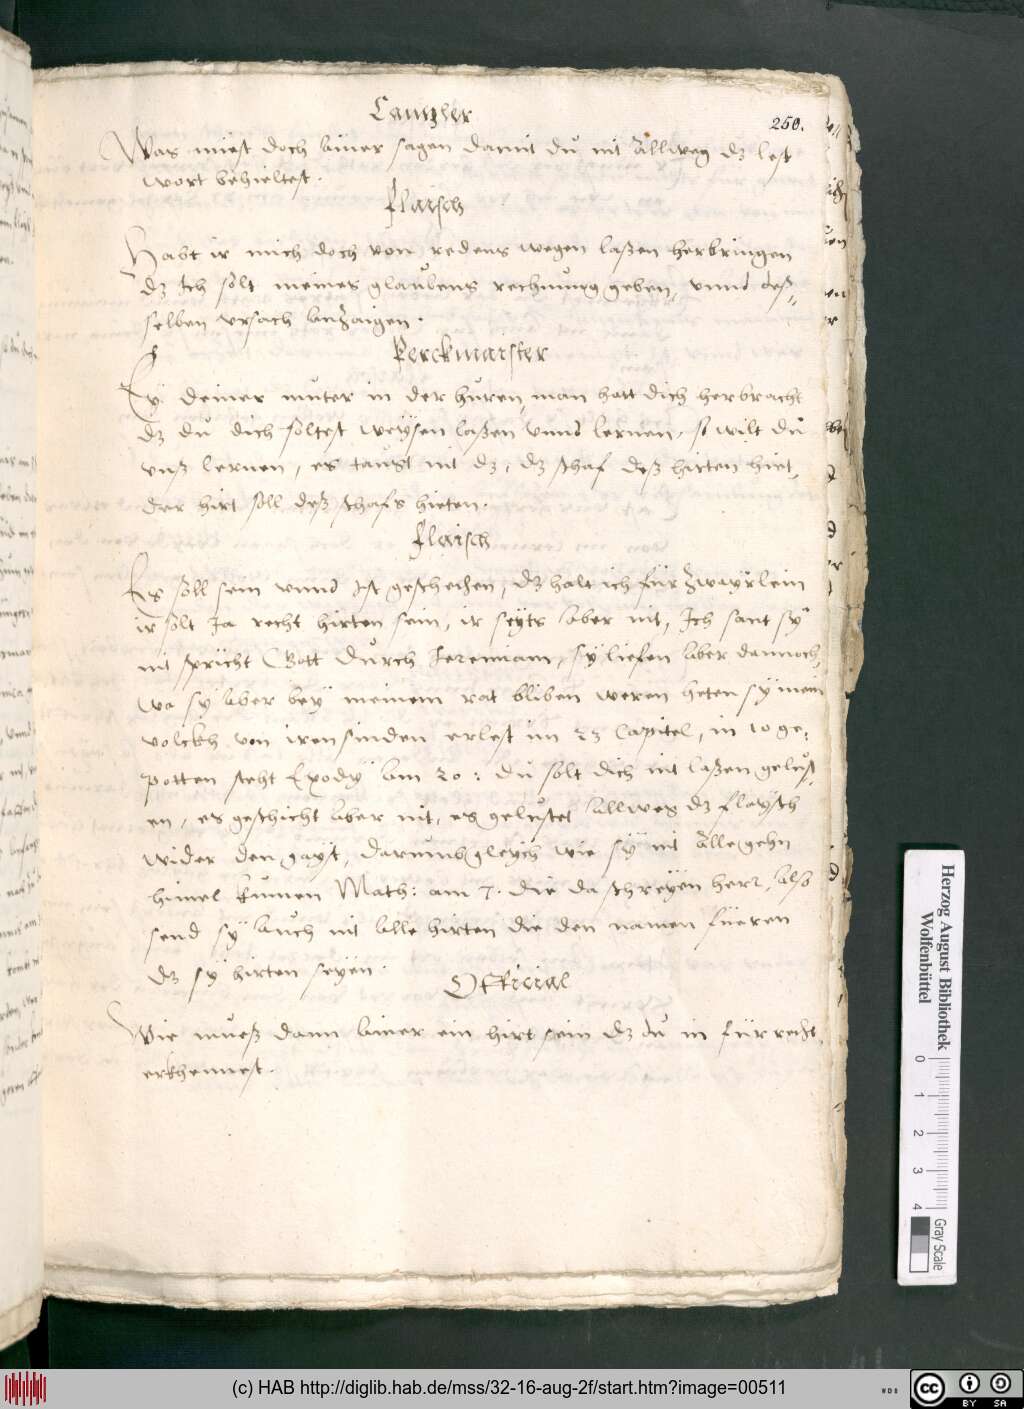 Cantzler
250.
Was miest doch ainer sagen damit du nit allweg dz lest
wort behieltest.
Flaisch
Habt ir mich doch von redens wegen laßen herbringen
dz Ich solt meines glaubens rechnung geben, vnnd deß,
selben vrsach anzaigen.
Perckmaister
Ey deiner muter in der huren, man hatt dich herbracht
dz du dich soltest weysen laßen vnnd lernen, so wilt du
vnß lernen, es taugt nit dz, dz schaf deß hirten hiet,
der hirt soll deß schafs hieten.
Flaisch
Es soll sein vnnd ist geschehen, dz halt ich für zway
ir solt Ja recht hirten sein, ir seyts aber nit, Ich sant sy
nit spricht Gott durch Jeremiam, sy liefen aber dannoch,
wo sy aber bey meinem rat bliben weren heten sy mein
volckh von iren sinden erlest im 23 Capitel, in 10 ge,
potten steht Exody am 20: du solt dich nit laßen gelust,
en, es geschicht aber nit, es gelustet allweg dz flaysch
wider den gayst, darumb gleych wie sy nit alle gehn
himel kumen Math: am 7. die da schreyen herr, also
send sy auch nit alle hirten die den namen füeren
dz sy hirten seyen.
Official
Wie mueß dann ainer ein hirt sein dz du in für recht
erkhennest.
Herzog August Bibliothek
Wolfenbüttel
0 1 2 3 4
Gray Scale
(c) HAB http://diglib.hab.de/mss/32-16-aug-2f/start.htm?image=00511
WDB
cc BY SA